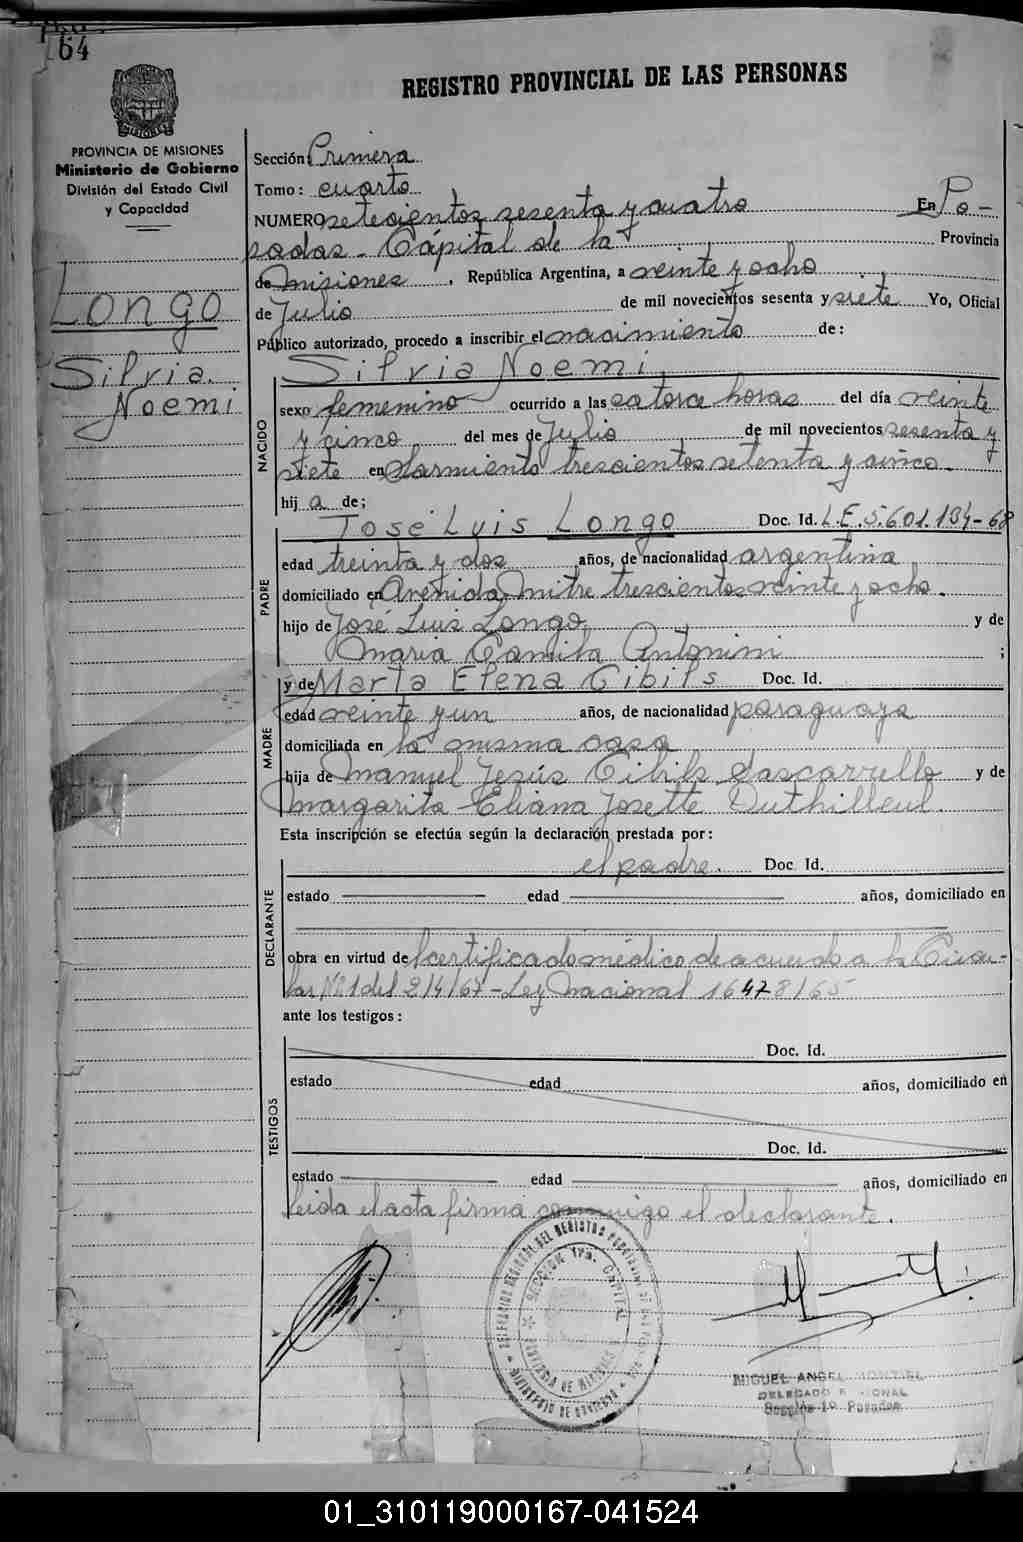 64
REGISTRO PROVINCIAL DE LAS PERSONAS
MISIONES
PROVINCIA DE MISIONES
Ministerio de Gobierno
División del Estado Civil
y Capacidad
Longo
Silvia
Noemi
Sección: Primera
Tomo: cuarto
NUMERO setecientos sesenta y cuatro En Po-
sadas - Cápital de la Provincia
de Misiones, República Argentina, a veinte y ocho
de Julio de mil novecientos sesenta y siete Yo, Oficial
Público autorizado, procedo a inscribir el nacimiento de:
Silvia Noemi
NACIDO
sexo femenino ocurrido a las catorce horas del día veinte
y cinco del mes de Julio de mil novecientos sesenta y
siete en Sarmiento trescientos setenta y cinco.
hij a de;
José Luis Longo Doc. Id. L.E. 5.601.134-68
PADRE
edad treinta y dos años, de nacionalidad argentina
domiciliado en Avenida Mitre trescientos veinte y ocho.
hijo de José Luis Longo y de
Maria Camila Antonini ;
y de Marta Elena Cibils Doc. Id.
MADRE
edad veinte y un años, de nacionalidad paraguaya
domiciliada en la misma casa
hija de Manuel Jesús Cibils y de
Margarita Eliana Josette Duthilleul.
Esta inscripción se efectúa según la declaración prestada por:
el padre. Doc. Id.
DECLARANTE
estado edad años, domiciliado en
obra en virtud del certificado médico de acuerdo a la Circu-
lar Nº 1 del 2/4/67 - Ley Nacional 16478/65
ante los testigos:
Doc. Id.
estado edad años, domiciliado en
TESTIGOS
Doc. Id.
estado edad años, domiciliado en
leida el acta firma conmigo el declarante.
SECCION 1ra. CAPITAL
PROVINCIA DE MISIONES
MINISTERIO DE GOBIERNO
MIGUEL ANGEL MONTIEL
DELEGADO
Sección 1º Posadas
01_310119000167-041524